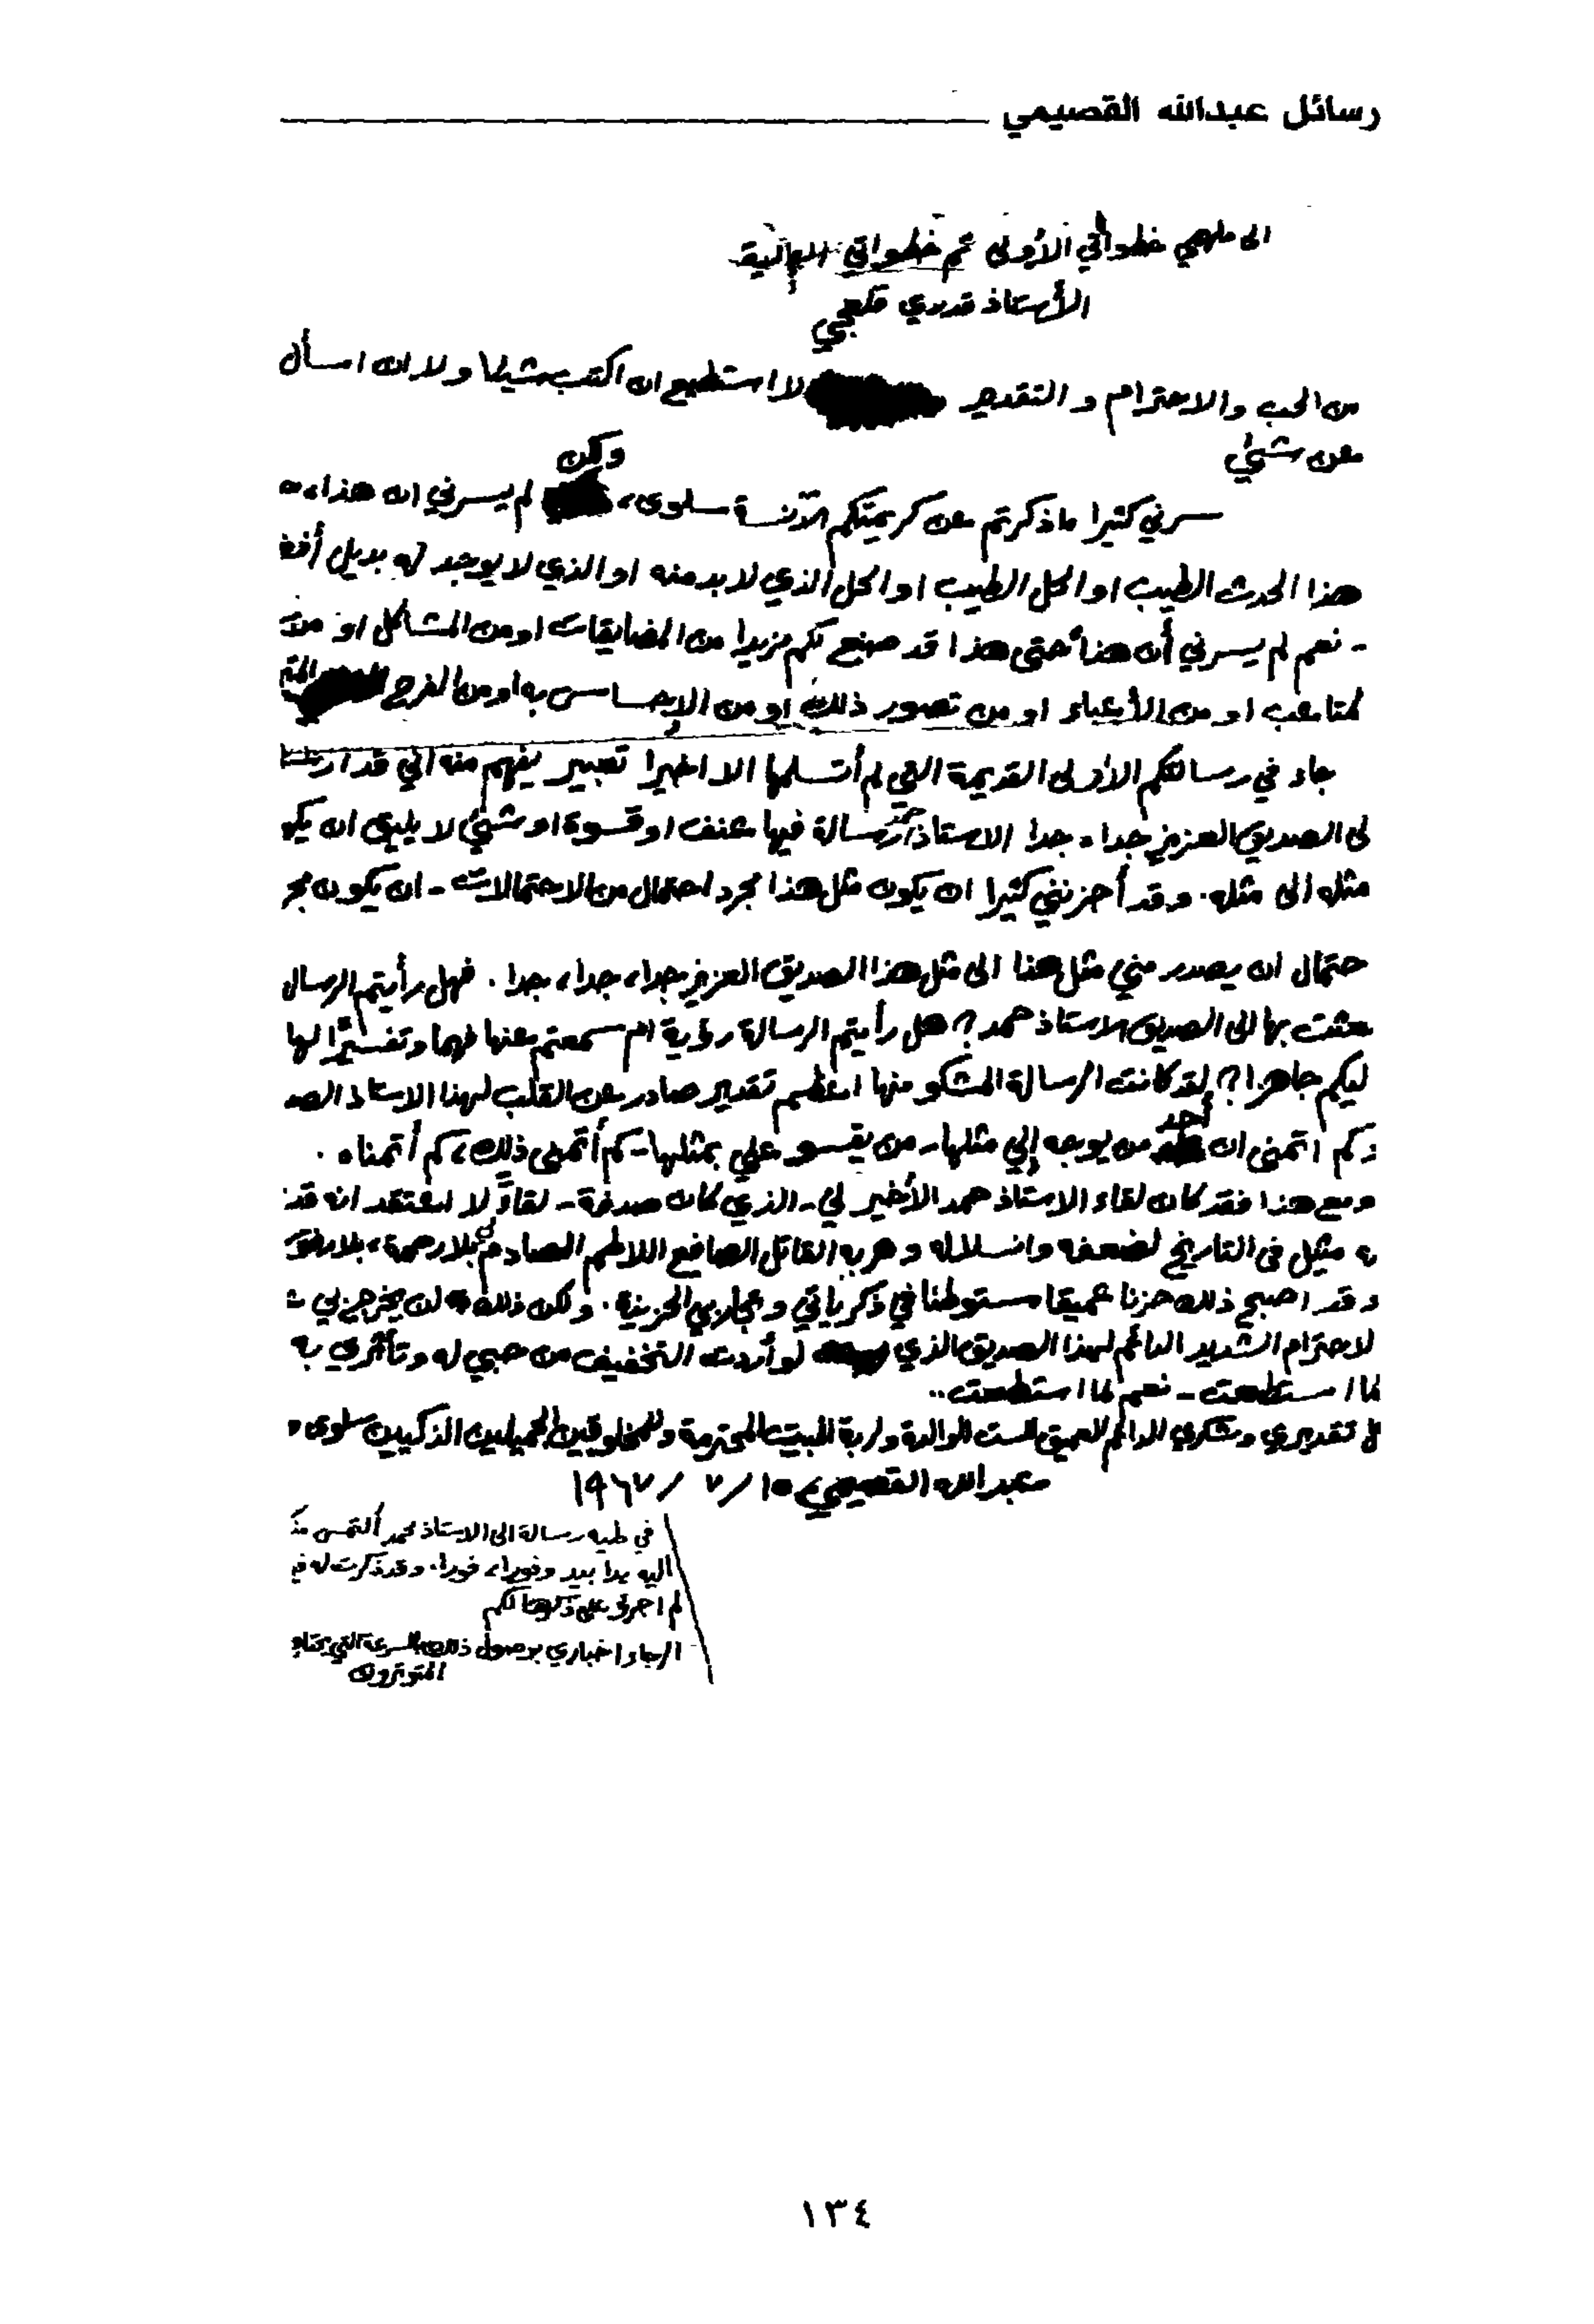 رسائل عبدالله القصيمي
الى ملهمي خطواتي الأولى ثم خطواتي
الأستاذ قدري قلعجي
من الحب والاحترام والتقدير لا استطيع ان اكتب شيئا ولا ان اسأل
عن شيئ
ولكن
سرني كثيرا ما ذكرتم عن كريمتكم الآنسة سلوى، لم يسرني ان هذا،
هذا الحدث الطيب او الحل الطيب او الحل الذي لا بد منه او الذي لا يوجد له بديل
- نعم لم يسرني أن هذا حتى هذا قد صنع لكم مزيدا من المضايقات او من المشاكل او من
لمتاعب او من الأعباء او من تصور ذلك او من الاحساس به او من الفرح
جاء في رسالتكم الأولى القديمة التي لم أتسلمها الا اخيرا تعبير يفهم منه اني قد
لى الصديق العزيز جدا، جدا الاستاذ حمد رسالة فيها عنف او قسوة او شيئ لا يليق ان
مثله الى مثله. وقد أحزنني كثيرا ان يكون مثل هذا مجرد احتمال من الاحتمالات - ان يكون
حتمال ان يصدر مني مثل هذا الى مثل هذا الصديق العزيز جدا، جدا، جدا. فهل رأيتم الرسال
عثت بها الى الصديق الاستاذ حمد؟ هل رأيتم الرسالة رؤية ام سمعتم عنها فهما وتفسيرًا لها
ليكم جاهزا؟! لقد كانت الرسالة المشكو منها اعظم تقدير صادر عن القلب لهذا الاستاذ الصد
أحد
كم اتمنى ان من يوجه إلي مثلها - من يقسو علي بمثلها - كم أتمنى ذلك، كم أتمناه.
ومع هذا فقد كان لقاء الاستاذ حمد الأخير لي - الذي كان صدفة - لقاءً لا اعتقد انه قد
ه مثيل في التاريخ لضعفه وانسلاله وهربه القاتل الصافع اللاطم الصادم لي بلا رحمة، بلا رفق
وقد اصبح ذلك حزنا عميقا مستوطنا في ذكرياتي وتجاربي الحزينة. ولكن ذلك لن يخرج بي
لاحترام الشديد الدائم لهذا الصديق الذي لو أردت التخفيف من حبي له وتأثري به
لما استطعت - نعم لما استطعت..
تقديري وشكري الدائم العميق للست الوالدة ولربة البيت المحترمة وللمخلوقين الجميلين الذكيين سلوى و
عبدالله القصيمي ١٥/ ٧/ ١٩٦٧
في طيه رسالة الى الاستاذ حمد ألتمس
اليه يدا بيد وفورا، فورا. وقد ذكرت له
لم اجرؤ على ذكرها لكم
الرجاء اخباري بوصول ذلك بالسرعة التي
المتوترون
١٣٤